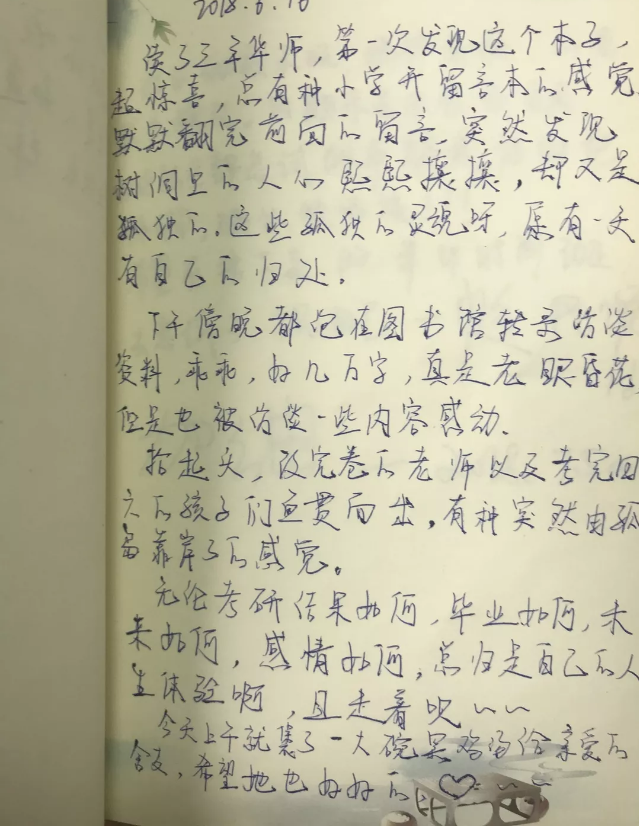 2018.6.10
读了三年华师，第一次发现这个本子，
超惊喜，总有种小学开留言本的感觉
默默翻完前面的留言，突然发现
树洞里的人们熙熙攘攘，却又是
孤独的。这些孤独的灵魂呀，愿有一天
有自己的归处。
下午傍晚都泡在图书馆转录访谈
资料，乖乖，好几万字，真是老眼昏花
但是也被访谈一些内容感动。
抬起头，改完卷的老师以及考完回
去的孩子们鱼贯而出，有种突然由孤
岛靠岸了的感觉。
无论考研结果如何，毕业如何，未
来如何，感情如何，总归是自己的人
生体验啊，且走着吧～～
今天上午就集了一大碗果鸡留给亲爱的
舍友，希望她也好好的 ♡～～